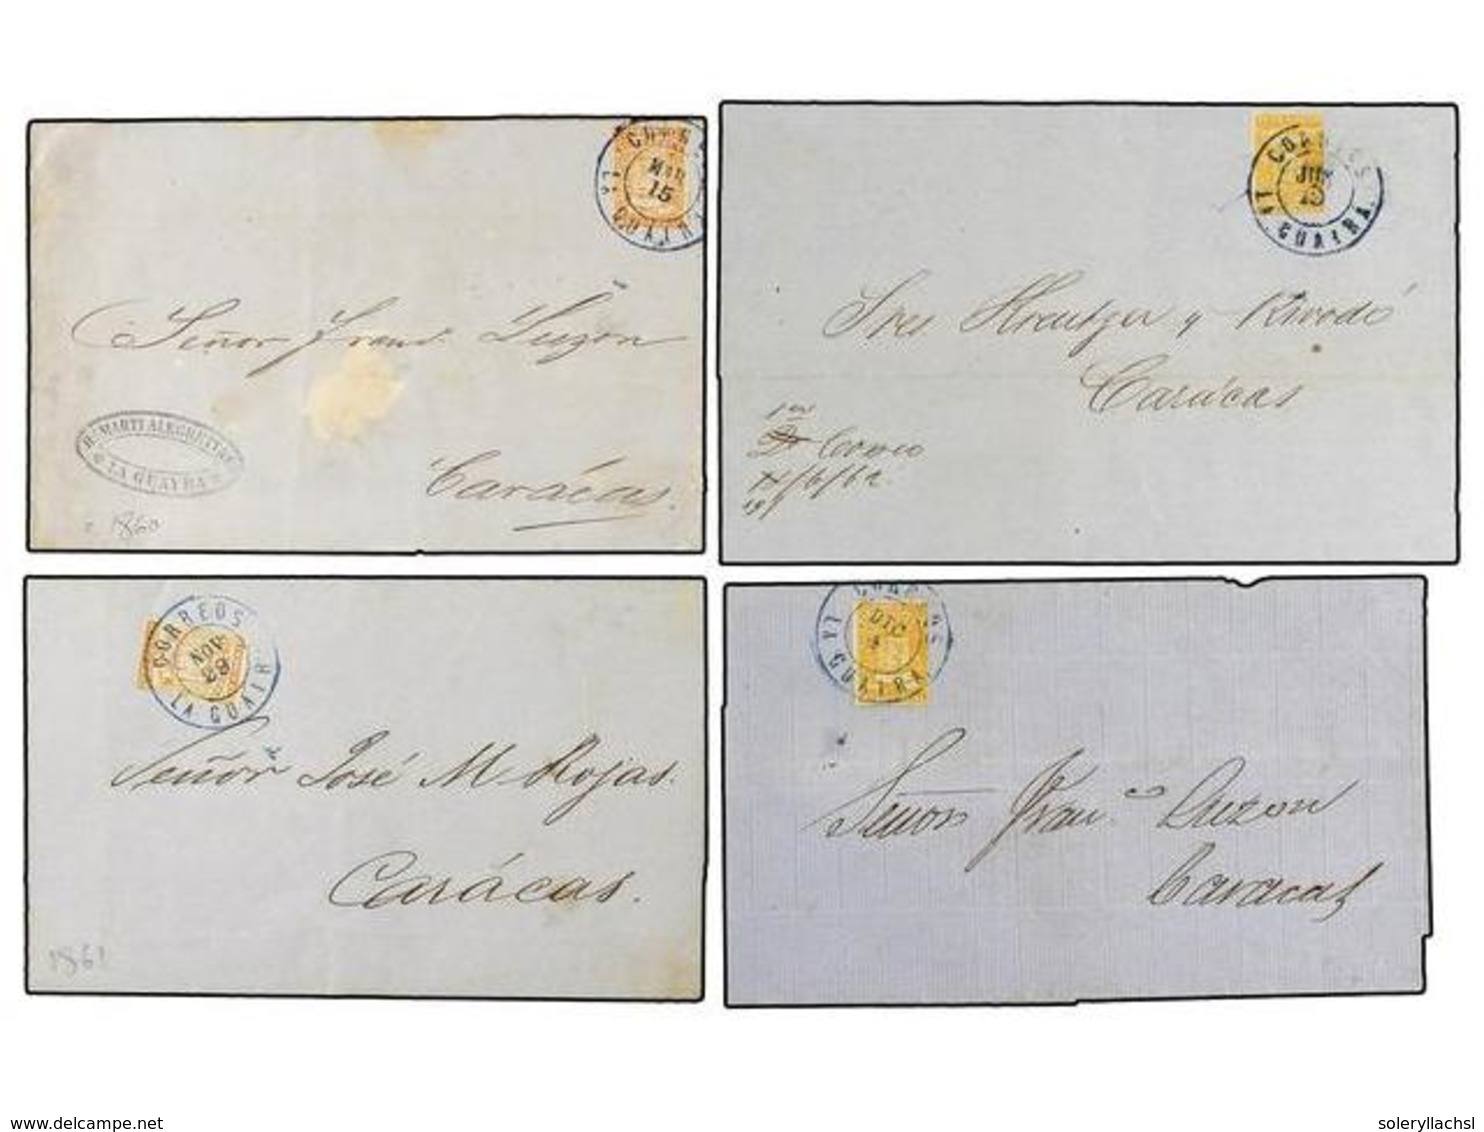 CORREOS
MAR
15
LA GUAIRA
Señor Franco Luzon
H. MARTI ALEGRETT
LA GUAYRA
Carácas.
1860
CORREOS
JUN
LA GUAIRA.
Sres Kreutzer y Rivodó
Carácas
1er
Correo
/6/62
19
CORREOS
NOV
28
LA GUAIRA
Señor José M. Rojas.
Carácas.
1861
CORREOS
DIC
LA GUAIRA
Señor Franco Luzon
Caracas
www.delcampe.net
soleryllachsl